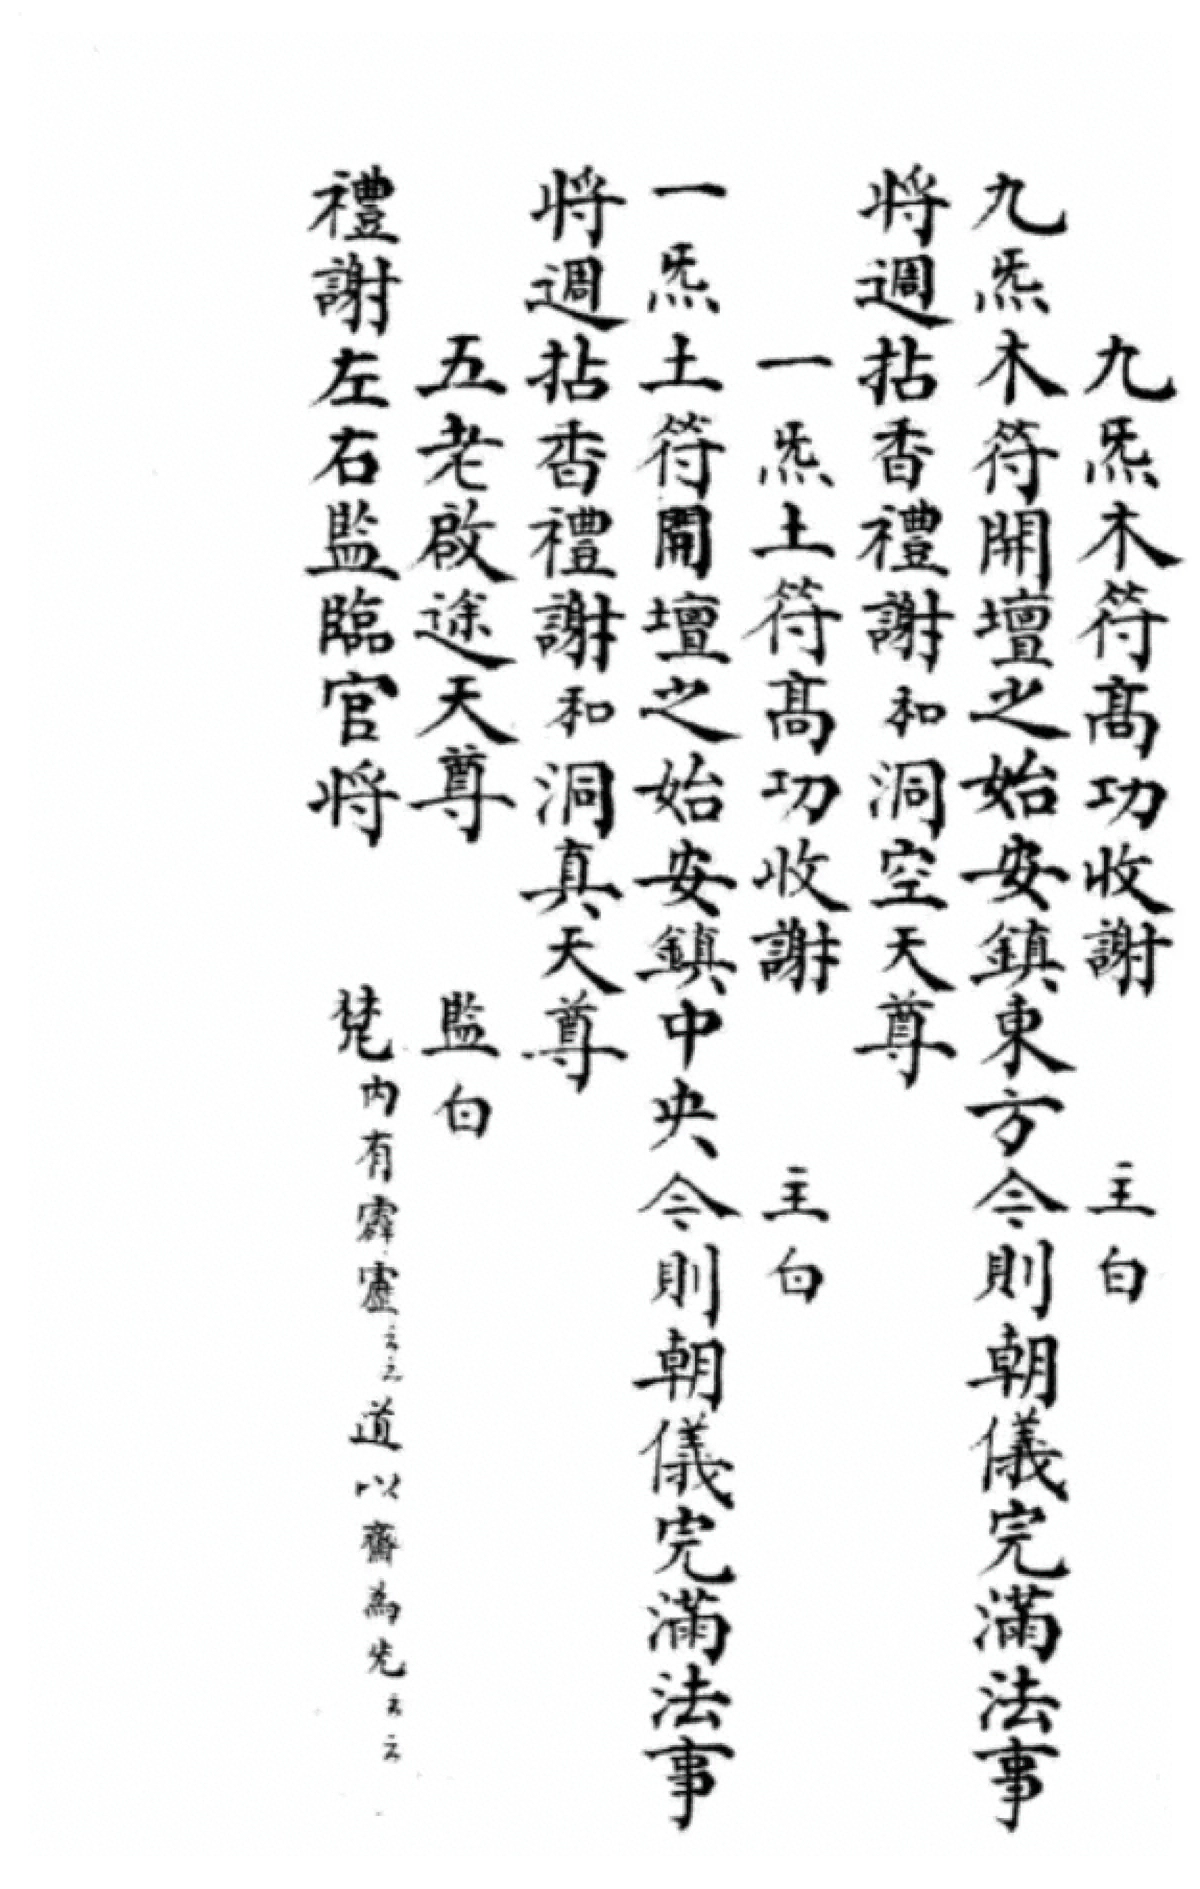 九炁木符髙功收謝　主白
九炁木符開壇之始安鎮東方令則朝儀完滿法事
将週拈香禮謝和洞空天尊
一炁土符髙功收謝　主白
一炁土符開壇之始安鎮中央令則朝儀完滿法事
将週拈香禮謝和洞真天尊
五老啟途天尊　監白
禮謝左右監臨官将　梵内有霹靂云云道以齋為先云云